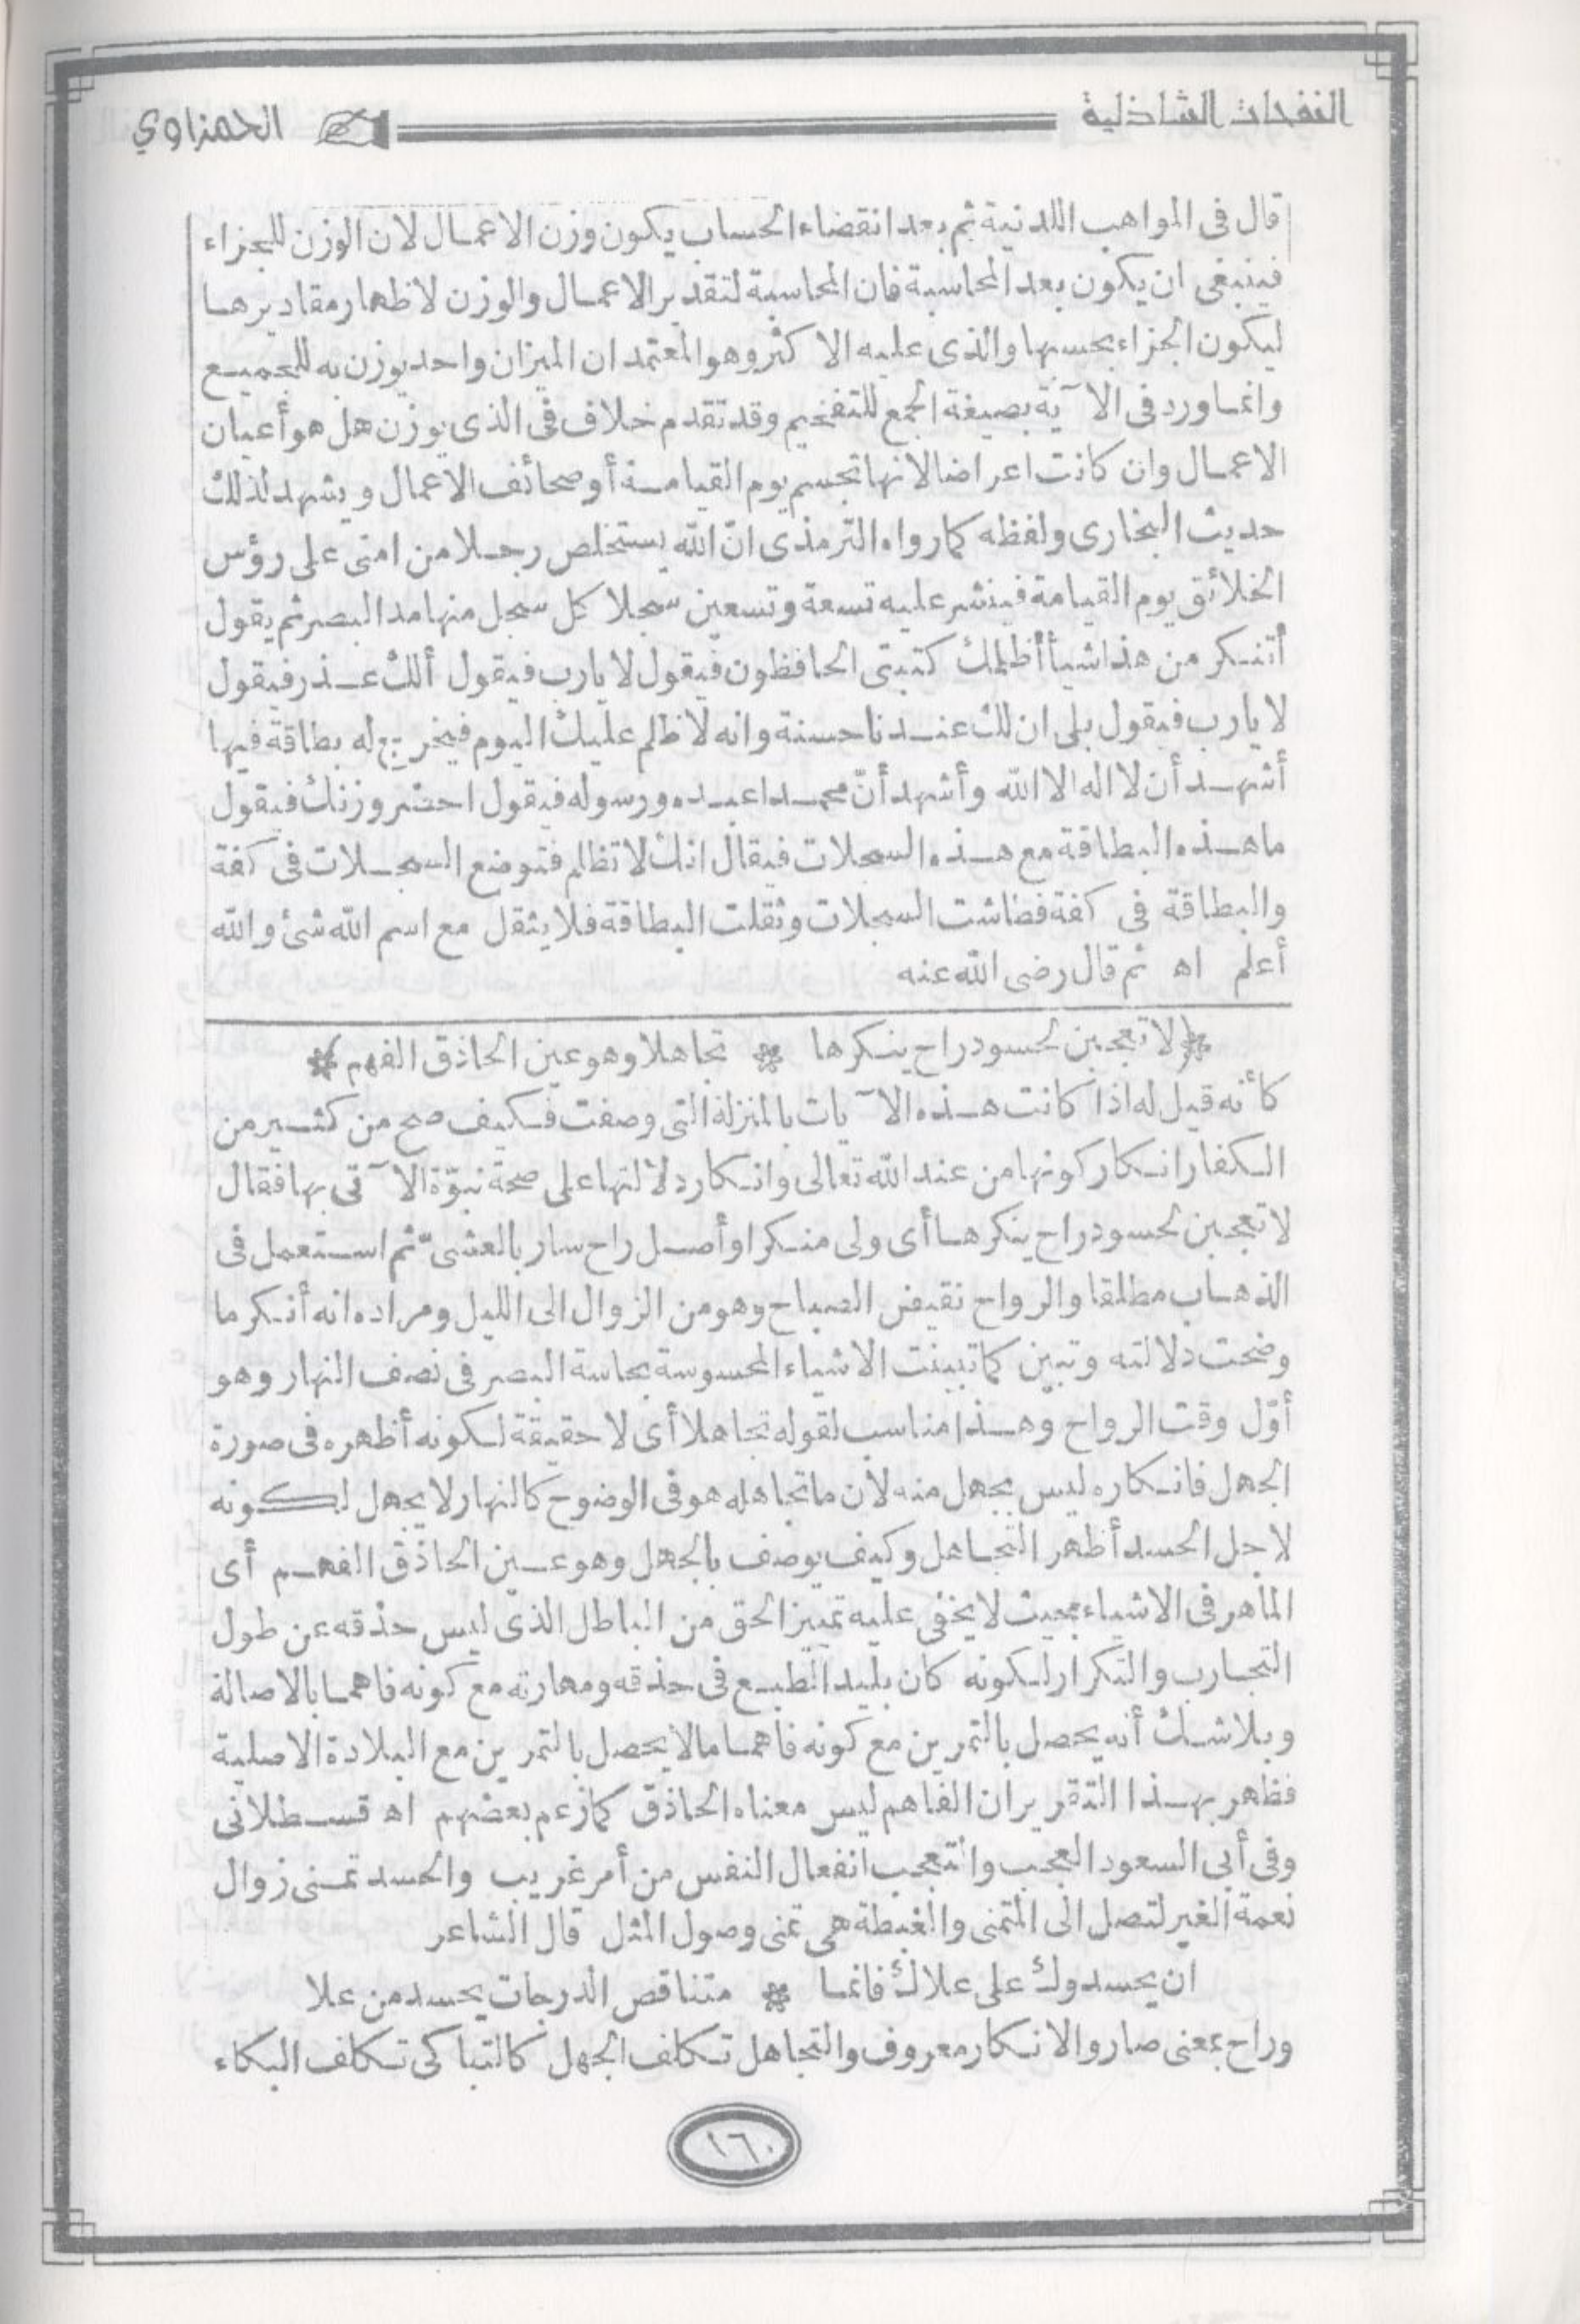 النفحات الشاذلية
الحمزاوي
قال فى المواهب اللدنية ثم بعد انقضاء الحساب يكون وزن الاعمال لان الوزن للجزاء
فينبغى ان يكون بعد المحاسبة فان المحاسبة لتقدير الاعمال والوزن لاظهار مقاديرها
ليكون الجزاء بحسبها والذى عليه الاكثر وهو المعتمد ان الميزان واحد يوزن به للجميع
وانما ورد فى الآية بصيغة الجمع للتفخيم وقد تقدم خلاف فى الذى يوزن هل هو أعيان
الاعمال وان كانت اعراضا لانها تجسم يوم القيامة أو صحائف الاعمال ويشهد لذلك
حديث البخارى ولفظه كما رواه الترمذى انّ الله يستخلص رجلا من امتى على رؤس
الخلائق يوم القيامة فينشر عليه تسعة وتسعين سجلا كل سجل منها مد البصر ثم يقول
أتنكر من هذا شيأ أظلمك كتبتى الحافظون فيقول لا يارب فيقول ألك عذر فيقول
لا يارب فيقول بلى ان لك عندنا حسنة وانه لا ظلم عليك اليوم فيخرج له بطاقة فيها
أشهد أن لا اله الا الله وأشهد أنّ محمدا عبده ورسوله فيقول احضر وزنك فيقول
ما هذه البطاقة مع هذه السجلات فيقال انك لا تظلم فتوضع السجلات فى كفة
والبطاقة فى كفة فطاشت السجلات وثقلت البطاقة فلا يثقل مع اسم الله شئ والله
أعلم اه ثم قال رضى الله عنه
*(لا تعجبن لحسود راح ينكرها * تجاهلا وهو عين الحاذق الفهم)*
كأنه قيل له اذا كانت هذه الآيات بالمنزلة التى وصفت فكيف صح من كثير من
الكفار انكار كونها من عند الله تعالى وانكار دلالتها على صحة نبوّة الآتى بها فقال
لا تعجبن لحسود راح ينكرها أى ولى منكرا وأصل راح سار بالعشىّ ثم استعمل فى
الذهاب مطلقا والرواح نقيض الصباح وهو من الزوال الى الليل ومراده انه أنكر ما
وضحت دلالته وتبين كما تبينت الاشياء المحسوسة بحاسة البصر فى نصف النهار وهو
أوّل وقت الرواح وهذا مناسب لقوله تجاهلا أى لا حقيقة لكونه أظهره فى صورة
الجهل فانكاره ليس بجهل منه لأن ما تجاهله هو فى الوضوح كالنهار لا يجهل لكونه
لاجل الحسد أظهر التجاهل وكيف يوصف بالجهل وهو عين الحاذق الفهم أى
الماهر فى الاشياء بحيث لا يخفى عليه تمييز الحق من الباطل الذى ليس حذقه عن طول
التجارب والتكرار لكونه كان بليد الطبع فى حذقه ومهارته مع كونه فاهما بالاصالة
وبلا شك أنه يحصل بالتمرين مع كونه فاهما ما لا يحصل بالتمرين مع البلادة الاصلية
فظهر بهذا التقرير ان الفاهم ليس معناه الحاذق كما زعم بعضهم اه قسطلانى
وفى أبى السعود العجب والتعجب انفعال النفس من أمر غريب والحسد تمنى زوال
نعمة الغير لتصل الى المتمنى والغبطة هى تمنى وصول المثل قال الشاعر
ان يحسدوك على علاك فانما * متناقص الدرجات يحسد من علا
وراح بمعنى صار والانكار معروف والتجاهل تكلف الجهل كالتباكى تكلف البكاء
١٦٠